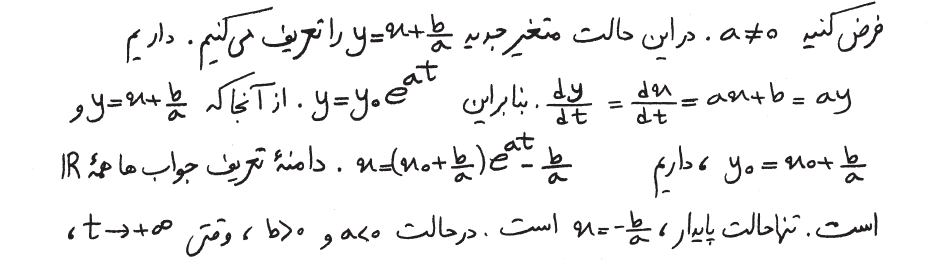 فرض کنید a≠0. در این حالت متغیر جدید y=x+b/a را تعریف می‌کنیم. داریم
dy/dt = dx/dt = ax+b = ay. بنابراین y=y₀e^{at}. از آنجا که y=x+b/a و
y₀=x₀+b/a، داریم x=(x₀+b/a)e^{at}-b/a. دامنهٔ تعریف جواب‌ها همهٔ ℝ
است. تنها حالت پایدار، x=-b/a است. در حالت a<0 و b>0، وقتی t→+∞،